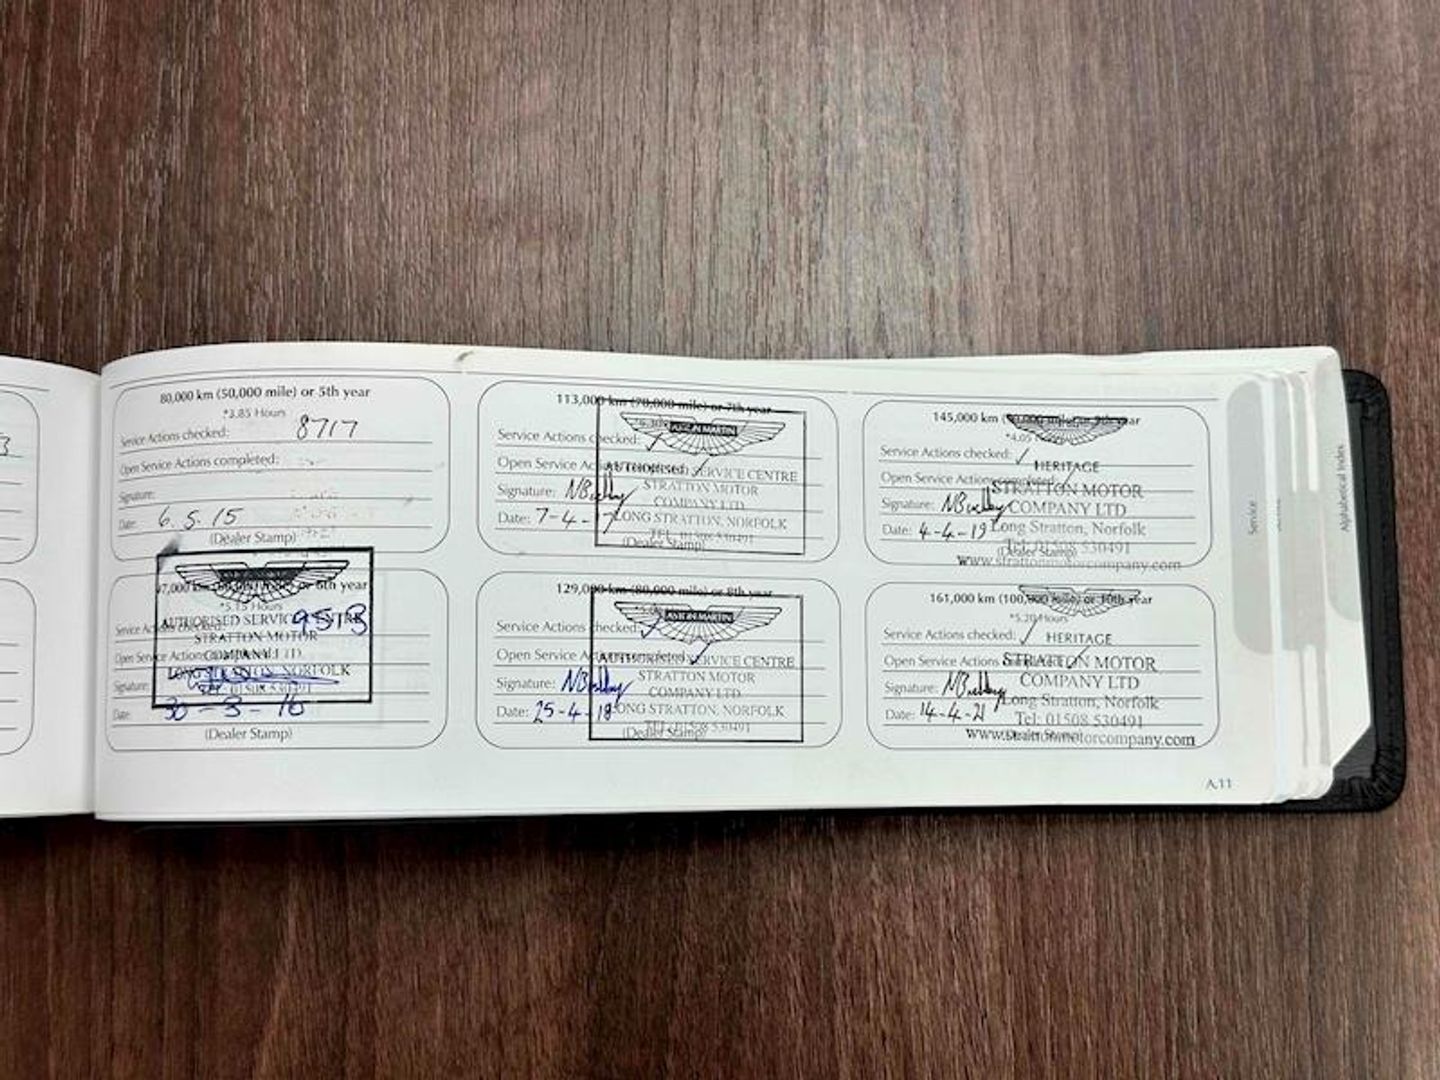 80,000 km (50,000 mile) or 5th year
*3.85 Hours
Service Actions checked: 8717
Open Service Actions completed:
Signature:
Date: 6.5.15
(Dealer Stamp)
97,000 km or 6th year
*5.15 Hours
ASTON MARTIN
AUTHORISED SERVICE CENTRE
9513
STRATTON MOTOR
COMPANY LTD.
LONG STRATTON, NORFOLK
TEL: 01508 530491
Service Actions checked:
Open Service Actions
Signature:
Date: 30-3-16
(Dealer Stamp)
113,000 km (70,000 mile) or 7th year
ASTON MARTIN
Service Actions checked: ✓
Open Service Actions
AUTHORISED SERVICE CENTRE
STRATTON MOTOR
COMPANY LTD
LONG STRATTON, NORFOLK
TEL: 01508 530491
Signature: NBuckley
Date: 7-4-17
(Dealer Stamp)
129,000 km (80,000 mile) or 8th year
ASTON MARTIN
Service Actions checked: ✓
Open Service Actions
AUTHORISED SERVICE CENTRE
STRATTON MOTOR
COMPANY LTD
LONG STRATTON, NORFOLK
TEL: 01508 530491
Signature: NBuckley
Date: 25-4-18
(Dealer Stamp)
145,000 km (90,000 mile) or 9th year
*4.05 Hours
Service Actions checked: ✓
HERITAGE
Open Service Actions
STRATTON MOTOR
COMPANY LTD
Signature: NBuckley
Date: 4-4-19
Long Stratton, Norfolk
Tel: 01508 530491
(Dealer Stamp)
www.strattonmotorcompany.com
161,000 km (100,000 mile) or 10th year
*5.20 Hours
Service Actions checked: ✓
HERITAGE
Open Service Actions
STRATTON MOTOR
COMPANY LTD
Signature: NBuckley
Date: 14-4-21
Long Stratton, Norfolk
Tel: 01508 530491
www.strattonmotorcompany.com
A.11
Service
Alphabetical Index
3